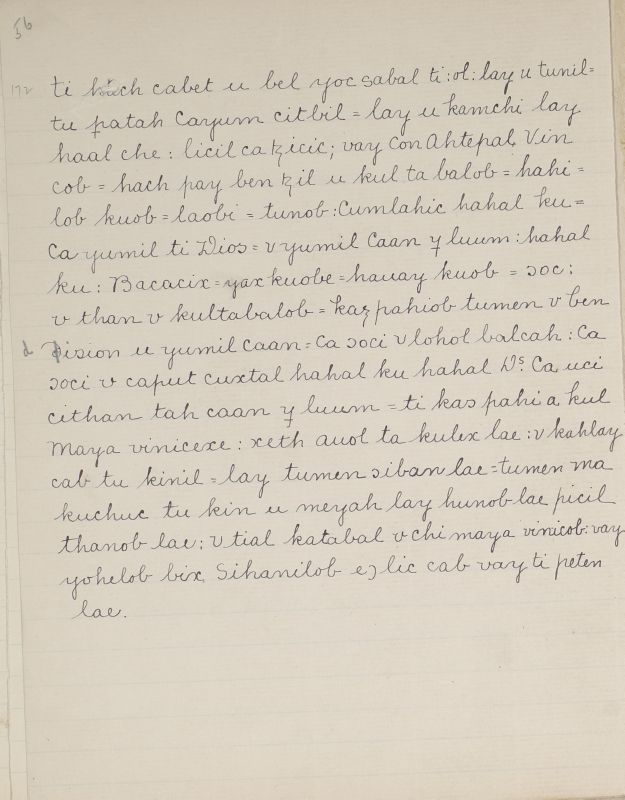 56
172 ti huch cabet u bel yoc sabal ti: ol: lay u tunil=
tu patah Cayum citbil = lay u kamchi lay
haal che: licil ca ꜩicic; vay Con Ahtepal, Vin
cob = hach pay ben ꜩil u kul ta balob = hahi=
lob kuob = laobi = tunob: Cumlahic hahal ku=
Ca yumil ti Dios = v yumil Caan y luum: hahal
ku: Bacacix = yax kuobe = hauay kuob = ɔoc;
v than v kultabalob = kaꜩ pahiob tumen v ben
dision u yumil caan = Ca ɔoci v lohol balcah: Ca
ɔoci v caput cuxtal hahal ku hahal Ds. Ca, uci
cithan tah caan y luum = ti kas pahi a kul
Maya vinicexe: xeth auol ta kulex lae: v kahlay
cab tu kinil = lay tumen ɔiban lae = tumen ma
kuchuc tu kin u meyah lay hunob lae picil
thanob lae; v tial katabal v chi maya vinicob: vay
yohelob bix, Sihanilob eɔlic cab vay ti peten
lae.